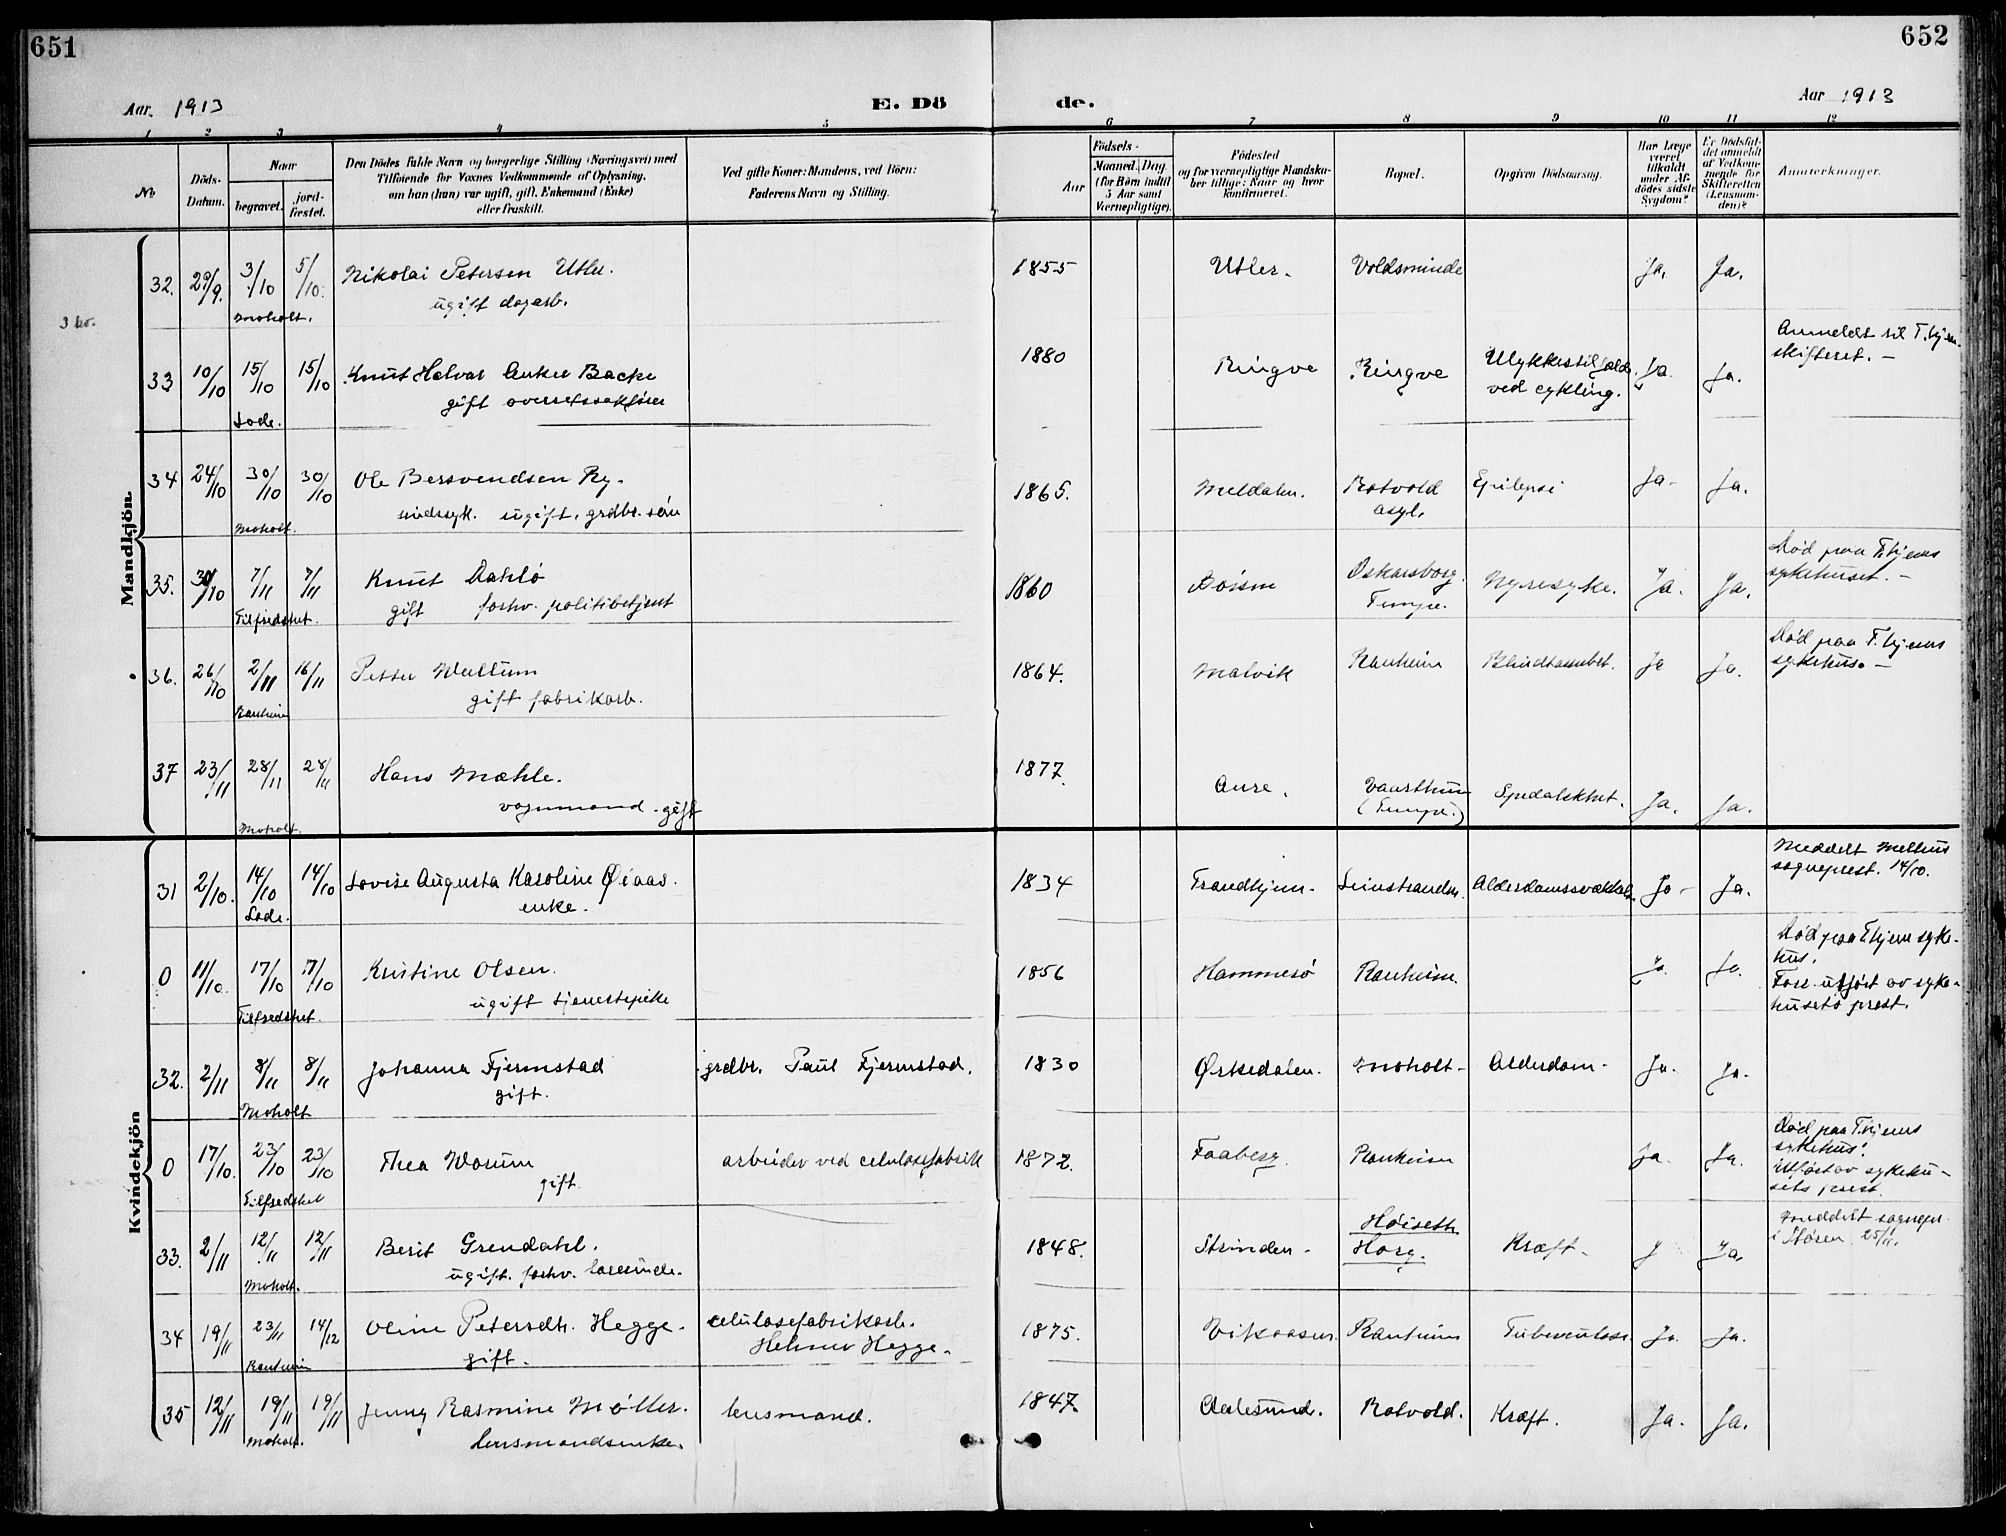 651
652
Aar. 1913
E. Dö
de.
Aar 1913
1 2 3 4 5 6 7 8 9 10 11 12
No
Döds-
Datum.
Naar
begravet.
jord-
fæstet.
Den Dödes fulde Navn og borgerlige Stilling (Næringsvei) med
Tilföiende for Voxnes Vedkommende af Oplysning,
om han (hun) var ugift, gift, Enkemand (Enke)
eller fraskilt.
Ved gifte Koner: Mandens, ved Börn:
Faderens Navn og Stilling.
Födsels-
Aar
Maaned. Dag.
(for Börn indtil
5 Aar samt
Værnepligtige).
Födested
og for værnepligtige Mandska-
ber tillige: Naar og hvor
konfirmeret.
Bopæl.
Opgiven Dödsaarsag.
Har Læge
været
tilkaldt
under Af-
dödes sidste
Sygdom?
Er Dödsfal-
det anmeldt
af Vedkom-
mende for
Skifteretten
(Lensman-
den)?
Anmærkninger.
Mandkjön
3 kr.
32. 29/9. 3/10 5/10. Nikolai Petersen Utler. 1855 Utler. Voldsminde Ja. Ja.
Moholt. ugift dagarb.
33 10/10 15/10 15/10 Knut Halvar Anker Backe 1880 Ringve Ringve Ulykkestilfælde Ja. Ja. Anmeldt til T.hjem.
Lade. gift overretssakfører ved cykling. skifteret. -
34 24/10 30/10 30/10 Ole Bersvendsen Ry. 1865. Meldalen. Rotvold Epilepsi Ja. Ja.
Moholt. sindssyk. ugift, grdbr. søn asyl.
35. 30/10 7/11 7/11 Knut Dahlø 1860 Oskarsborg. Nyresyke. Ja. Ja. Død paa T.hjems
Tilfredshet. gift forhv. politibetjent Tempe. sykehuset. -
36. 26/10 2/11 16/11 Petter Wullum 1864. Malvik Ranheim Blindtarmbet. Ja Ja. Død paa T.hjems
Ranheim gift fabrikarb. sykehus. -
37 23/11 28/11 28/11 Hans Mæhle. 1877. Aure. Spedalskhet. Ja. Ja.
Moholt. vognmand. gift (Tempe.)
Kvindekjön
31 2/10. 14/10 14/10 Lovise Augusta Karoline Øiaas. 1834 Trondhjem. Leinstranden. Alderdomssvakhet. Ja. Ja. Meddelt Melhus
Lade. enke. sogneprest. 14/10.
0 11/10. 17/10 17/10 Kristine Olsen. 1856 Hammersø Ranheim. Ja. Ja. Død paa T.hjem syke-
Tilfredshet. ugift tjenestepike hus.
Forr. utført av syke-
husets prest.
32. 2/11 8/11 8/11 Johanna Fjermstad grdbr. Paul Fjermstad. 1830 Ørkedalen. Moholt. Alderdom. Ja. Ja.
Moholt gift.
0 17/10. 23/10 23/10 Thea Worum arbeider ved celulosefabrik 1872. Faaberg. Ranheim Ja. Ja. Død paa T.hjems
Tilfredshet gift. sykehus.
Utført av sykehu-
sets prest.
33. 2/11 12/11 12/11 Berit Grendahl. 1848. Strinden. Høiseth Kræft. J Ja. Meddelt sognepr.
Moholt. ugift. forhv. lærerinde. Horg. i Støren 25/11.
34 19/11 23/11 14/12 Oline Petersdtr. Hegge. celulosefabrikarb. 1875. Ranheim Tuberculose. Ja. Ja.
Ranheim gift. Helmer Hegge.
35 12/11 19/11 19/11 Jenny Rasmine Møller. lensmand. 1847. Aalesund. Rotvold. Kræft. Ja. Ja.
Moholt. lensmandsenke.